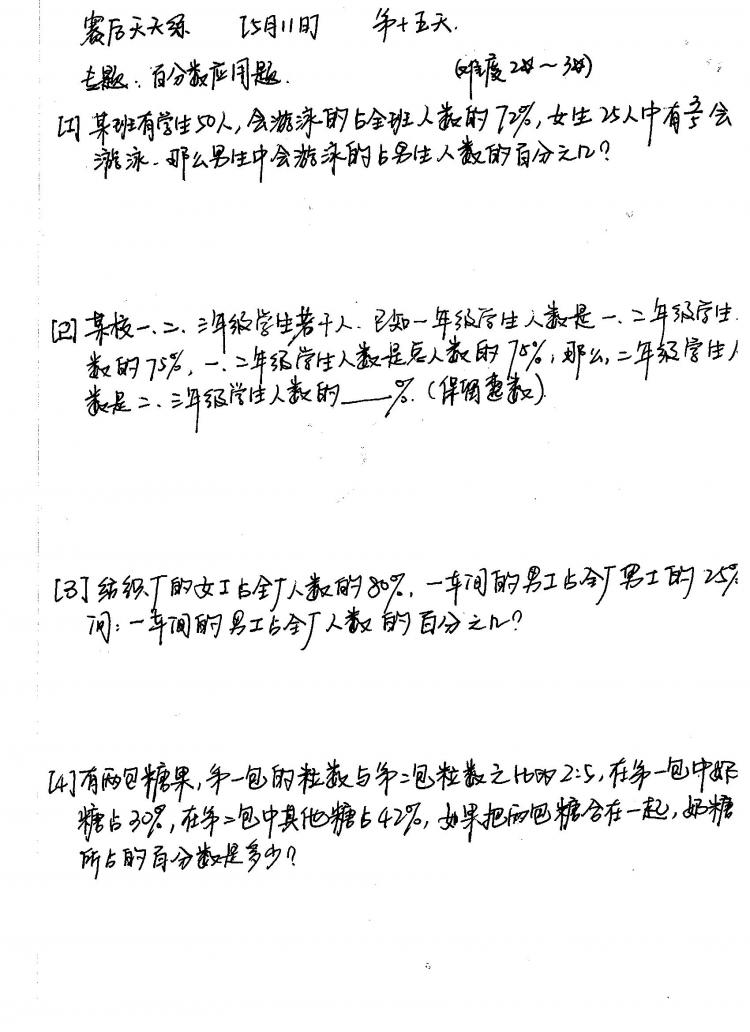 赛后天天练 [5月11日] 第十五天.
专题: 百分数应用题. (难度2星~3星)
[1] 某班有学生50人, 会游泳的占全班人数的72%, 女生25人中有3/5会
游泳. 那么男生中会游泳的占男生人数的百分之几?
[2] 某校一、二、三年级学生若干人. 已知一年级学生人数是一、二年级学生
数的75%, 一、二年级学生人数是总人数的75%, 那么, 二年级学生人
数是二、三年级学生人数的____%. (保留整数)
[3] 纺织厂的女工占全厂人数的80%, 一车间的男工占全厂男工的25%
问: 一车间的男工占全厂人数的百分之几?
[4] 有两包糖果, 第一包的粒数与第二包粒数之比为2:5, 在第一包中奶
糖占30%, 在第二包中其他糖占42%, 如果把两包糖合在一起, 奶糖
所占的百分数是多少?